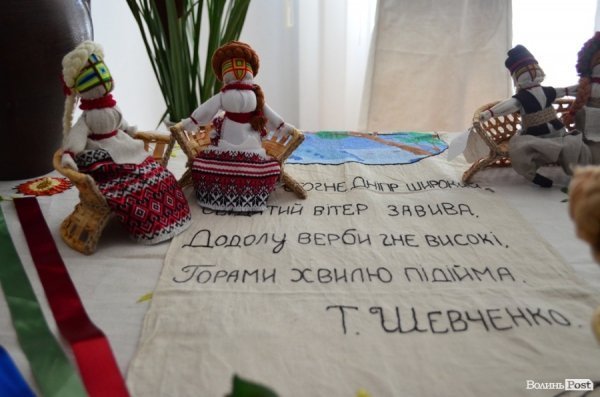 Дніпр широкий,
вітер завива.
Додолу верби гне високі,
Горами хвилю підійма.
Т. Шевченко.
ВолиньPost